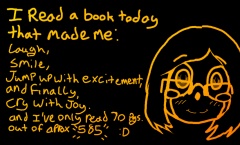 I Read a book today
that made me:
Laugh,
Smile,
Jump up with excitement,
and finally,
Cry with Joy.
and I've only read 70 pgs.
out of aprox 585 :D